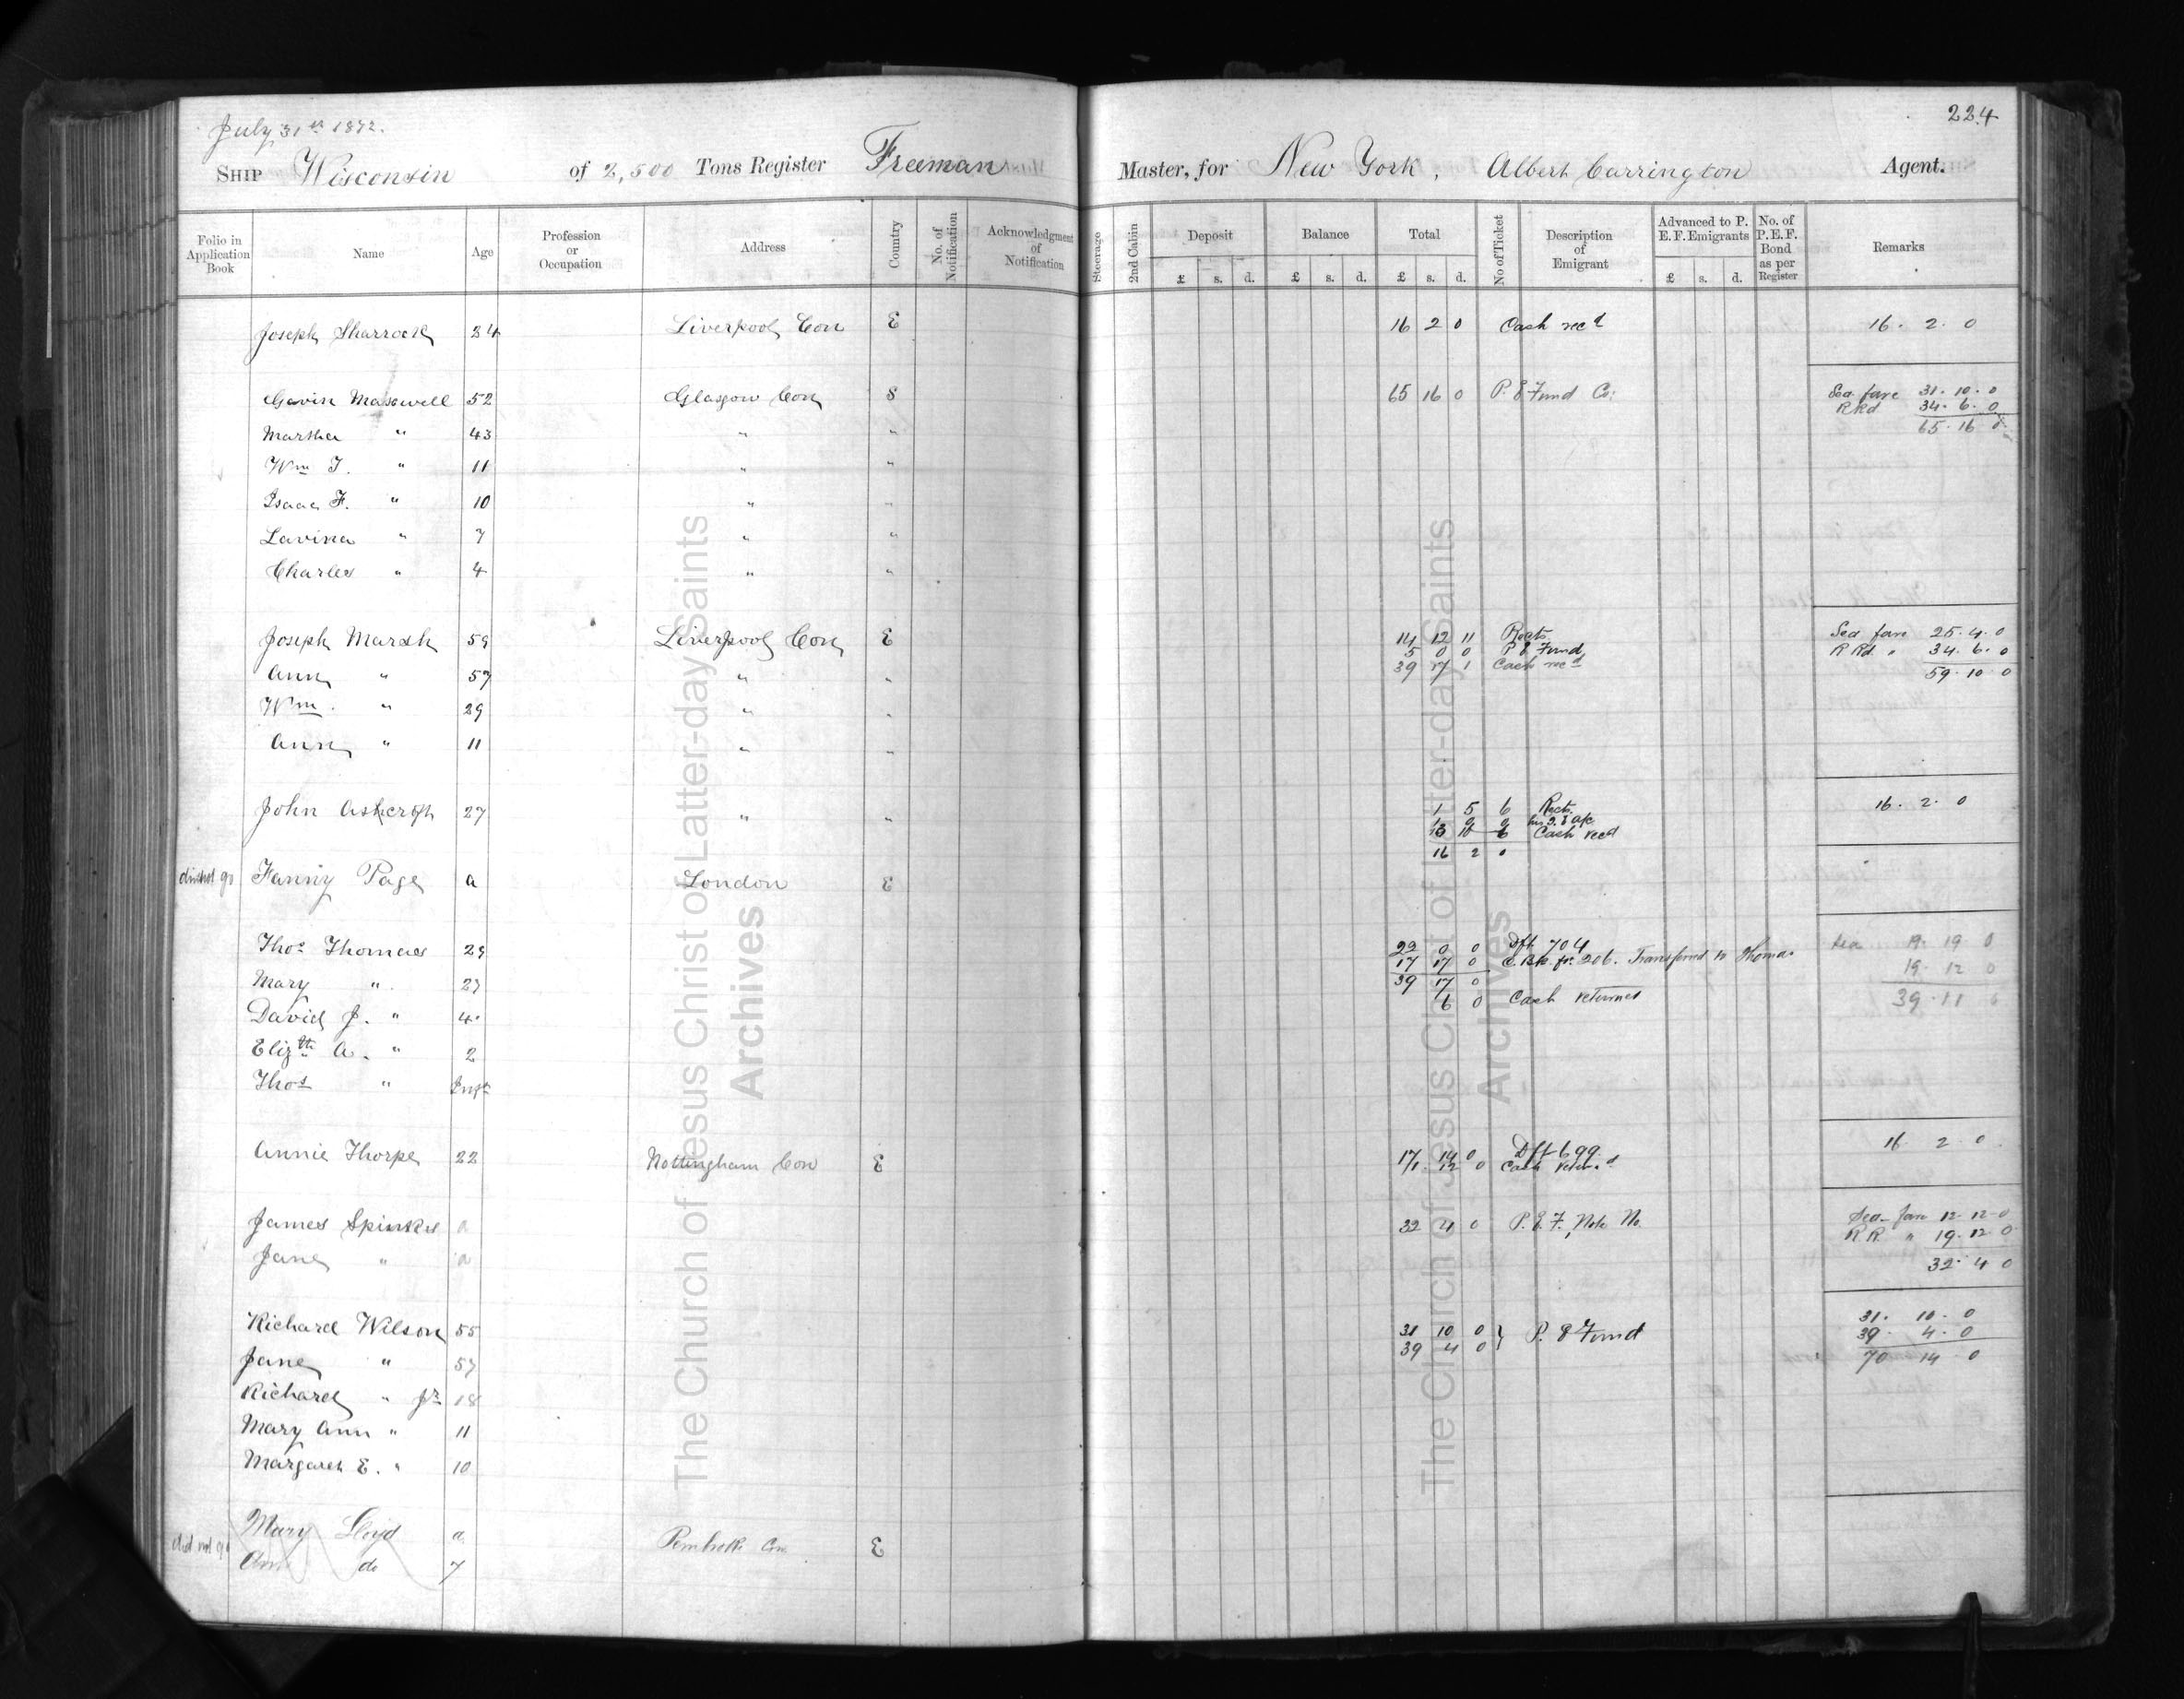 July 31st 1872.
224
SHIP Wisconsin of 2,500 Tons Register Freeman Master, for New York, Albert Carrington Agent.
Folio in Application Book Name Age Profession or Occupation Address Country No. of Notification Acknowledgment of Notification Steerage 2nd Cabin Deposit Balance Total No of Ticket Description of Emigrant Advanced to P. E. F. Emigrants No. of P.E.F. Bond as per Register Remarks
£ s. d. £ s. d. £ s. d. £ s. d.
Joseph Sharrock 34 Liverpool Con E 16 2 0 Cash recd 16. 2. 0
Gavin Maxwell 52 Glasgow Con S 65 16 0 P. E Fund Co: Sea fare 31. 10. 0
RRd 34. 6. 0
Martha " 43 " " 65. 16 0
Wm J. " 11 " "
Isaac F. " 10 " "
Lavina " 7 " "
Charles " 4 " "
Joseph Marsh 59 Liverpool Con E 14 12 11 Rects Sea fare 25. 4. 0
5 0 0 P. E Fund R Rd. " 34. 6. 0
39 17 1 Cash recd
Ann " 57 " " 59. 10. 0
Wm. " 29 " "
Ann " 11 " "
John Ashcroft 27 " " 1 5 6 Rects. 16. 2. 0
Cash recd
16 2 0
did not go Fanny Page a London E
Thos Thomas 29 22 0 0 Dft 704 Sea 19. 19 0
17 17 0 206. Transferred to Thomas 19. 12 0
Mary " 27 39 17 0
6 0 Cash returned 39. 11 0
David J. " 4
Elizth A. " 2
Thos " Inft
Annie Thorpe 22 Nottingham Con E 17 14 0 Dft 699 16. 2. 0
1 12 0 Cash returd
James Spinks a 32 4 0 P. E. F. Note No. Sea-fare 12-12-0
R R. " 19. 12 0
Jane " a 32. 4 0
Richard Wilson 55 31 10 0 } P. E Fund 31. 10. 0
39 4 0 39. 4. 0
Jane " 57 70 14 0
Richard " Jr 18
Mary Ann " 11
Margaret E. " 10
Mary Lloyd a Pembroke Con E
did not go Ann do 7
The Church of Jesus Christ of Latter-day Saints
Archives
The Church of Jesus Christ of Latter-day Saints
Archives